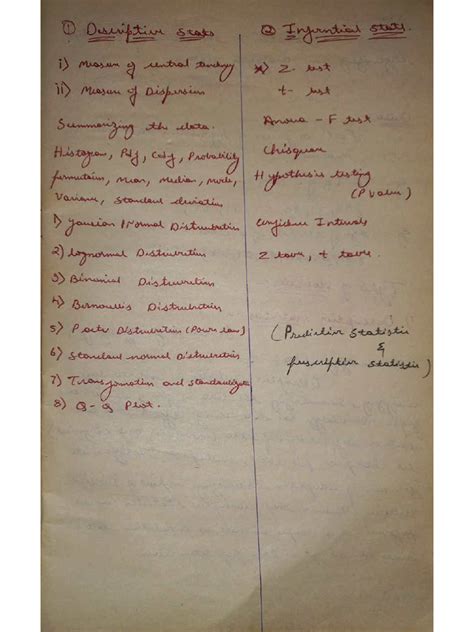 ① Descriptive Stats
i) Measure of central tendency
ii) Measure of Dispersion
Summarizing the data.
Histogram, Pdf, Cdf, Probability
permutation, Mean, Median, mode,
Variance, Standard deviation
1) Gaussian/Normal Distribution
2) Lognormal Distribution
3) Binomial Distribution
4) Bernoullis Distribution
5) Pareto Distribution (Power law)
6) Standard normal Distribution
7) Transformation and Standardization
8) Q-Q Plot.
② Inferential Stats.
Z test
t- test
Anova - F test
Chisquare
Hypothesis testing
(P value)
Confidence Intervals
Z table, t table.
(Predictive Statistic
&
prescriptive statistic)